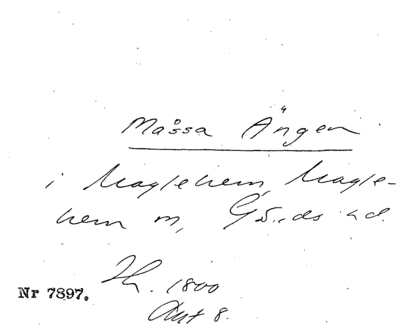 Måssa Ängen
i Maglehem, Magle-
hem sn, Gärds hd.
Nr 7897. Th. 1800
Akt 8.